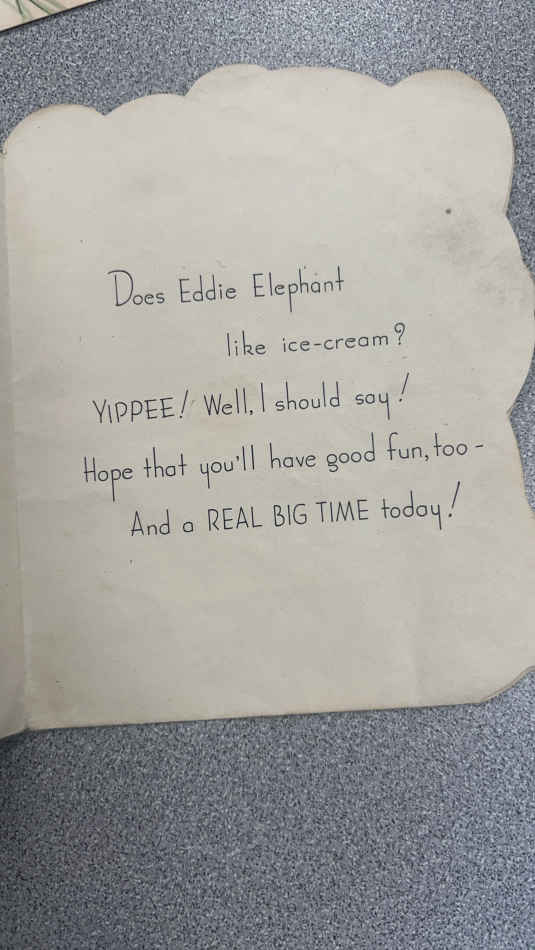 Does Eddie Elephant
like ice-cream?
YIPPEE! Well, I should say!
Hope that you'll have good fun, too -
And a REAL BIG TIME today!